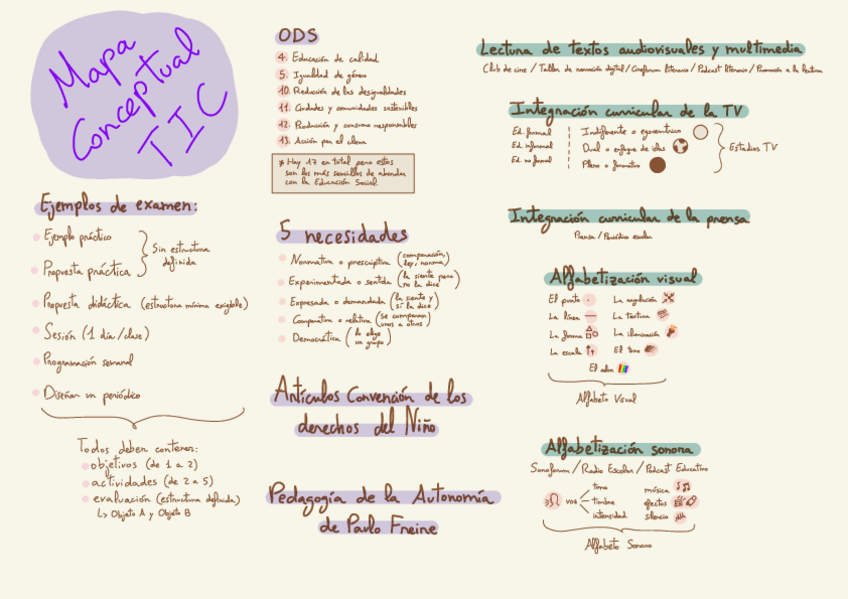 Mapa
Conceptual
TIC
Ejemplos de examen:
Ejemplo práctico
Propuesta práctica
Sin estructura
definida
Propuesta didáctica (estructura mínima exigible)
Sesión (1 día/clase)
Programación semanal
Diseñar un periódico
Todos deben contener:
objetivos (de 1 a 2)
actividades (de 2 a 5)
evaluación (estructura definida)
↳ Objeto A y Objeto B
ODS
4. Educación de calidad
5. Igualdad de género
10. Reducción de las desigualdades
11. Ciudades y comunidades sostenibles
12. Producción y consumo responsables
13. Acción por el clima
* Hay 17 en total pero estos
son los más sencillos de abordar
con la Educación Social.
5 necesidades
Normativa o prescriptiva (comparación,
ley, norma)
Experimentada o sentida (la siente pero
no la dice)
Expresada o demandada (la siente y
sí la dice)
Comparativa o relativa (se comparan
unos a otros)
Democrática (lo elige
un grupo)
Artículos Convención de los
derechos del Niño
Pedagogía de la Autonomía
de Paulo Freire
Lectura de textos audiovisuales y multimedia
Club de cine / Taller de narración digital / Cineforum literario / Podcast literario / Promoción a la lectura
Integración curricular de la TV
Ed. formal
Ed. informal
Ed. no formal
Indiferente o egocéntrico
Dual o enfoque de islas
Pleno o formativo
Estadios TV
Integración curricular de la prensa
Prensa / Periódico escolar
Alfabetización visual
El punto
La línea
La forma
La escala
La angulación
La textura
La iluminación
El tono
El color
Alfabeto Visual
Alfabetización sonora
Sonoforum / Radio Escolar / Podcast Educativo
voz
tono
timbre
intensidad
música
efectos
silencio
Alfabeto Sonoro